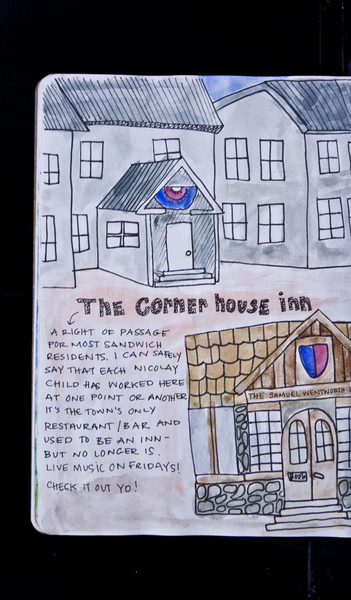 The Corner house inn
A RIGHT OF PASSAGE
FOR MOST SANDWICH
RESIDENTS. I CAN SAFELY
SAY THAT EACH NICOLAY
CHILD HAS WORKED HERE
AT ONE POINT OR ANOTHER
IT'S THE TOWN'S ONLY
RESTAURANT/BAR AND
USED TO BE AN INN-
BUT NO LONGER IS.
LIVE MUSIC ON FRIDAYS!
CHECK IT OUT YO!
THE SAMUEL WENTWORTH